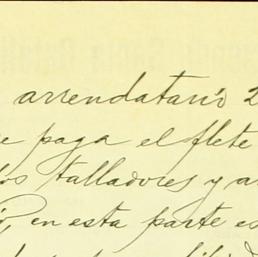 arrendatario 2
e paga el flete
los talladores y a
en esta parte es